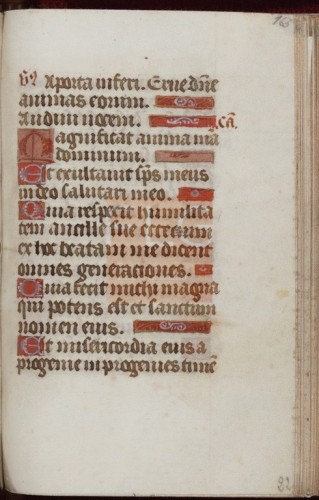 16
A porta inferi. Erue dñe
animas eorum.
Audiui uocem. cã.
Magnificat anima mea
dominum.
Et exultauit sp̃s meus
in deo salutari meo.
Quia respexit humilita
tem ancille sue ecce enim
ex hoc beatam me dicent
omnes generaciones.
Quia fecit michi magna
qui potens est et sanctum
nomen eius.
Et misericordia eius a
progenie in progenies timẽ
22